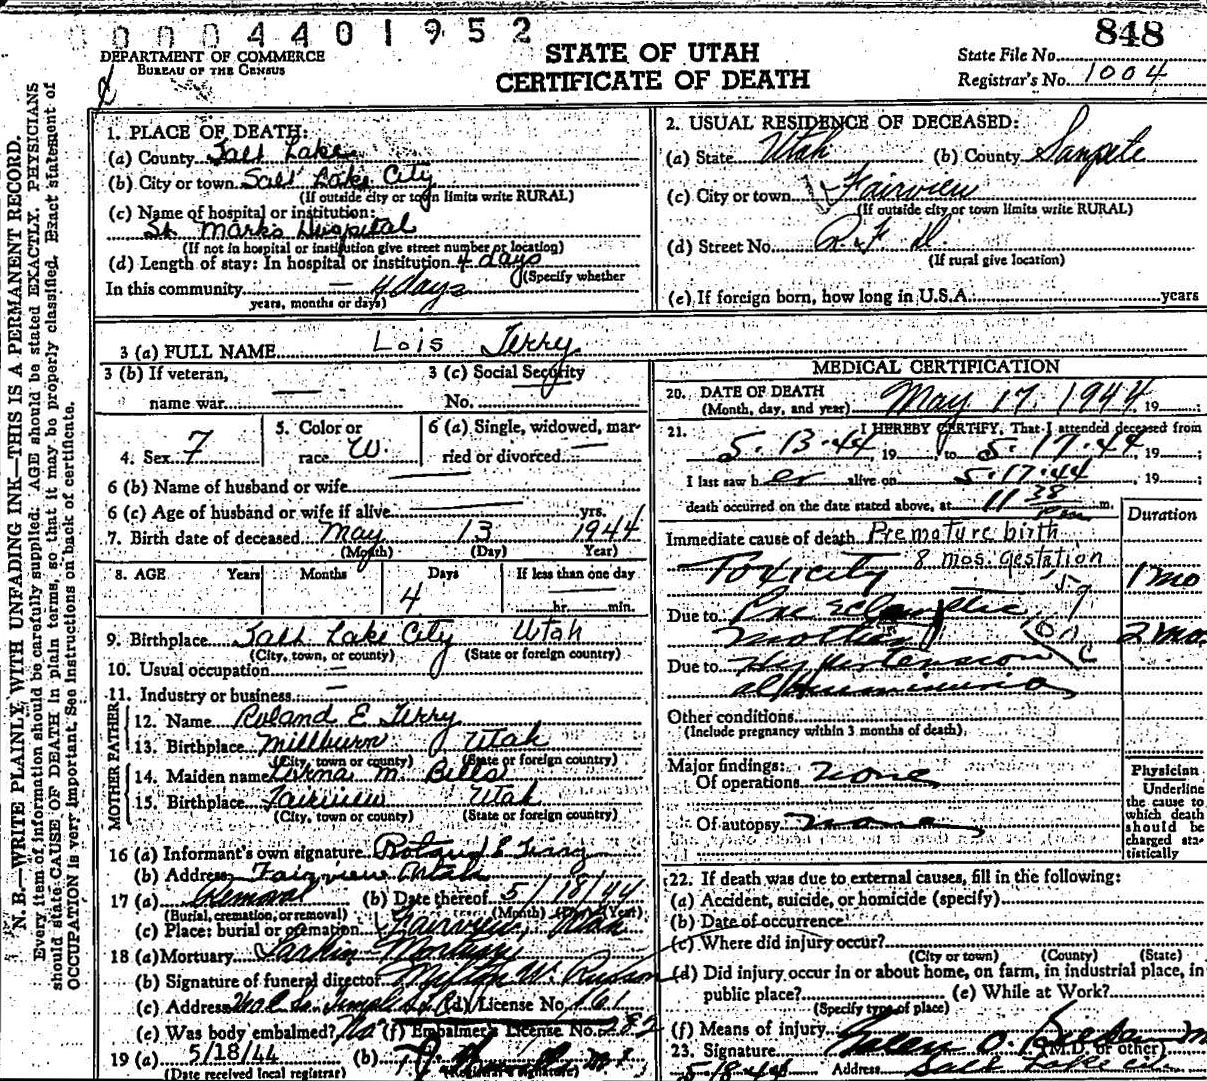 0004401952
848
DEPARTMENT OF COMMERCE
BUREAU OF THE CENSUS
STATE OF UTAH
CERTIFICATE OF DEATH
State File No.
Registrar's No. 1004
N. B.—WRITE PLAINLY, WITH UNFADING INK—THIS IS A PERMANENT RECORD.
Every item of information should be carefully supplied. AGE should be stated EXACTLY. PHYSICIANS
should state CAUSE OF DEATH in plain terms, so that it may be properly classified. Exact statement of
OCCUPATION is very important. See instructions on back of certificate.
1. PLACE OF DEATH:
(a) County Salt Lake
(b) City or town Salt Lake City
(If outside city or town limits write RURAL)
(c) Name of hospital or institution:
St. Mark's Hospital
(If not in hospital or institution give street number or location)
(d) Length of stay: In hospital or institution 4 days
(Specify whether
In this community — 4 days
years, months or days)
2. USUAL RESIDENCE OF DECEASED:
(a) State Utah (b) County Sanpete
(c) City or town Fairview
(If outside city or town limits write RURAL)
(d) Street No. R. F. D.
(If rural give location)
(e) If foreign born, how long in U.S.A. years
3 (a) FULL NAME Lois Terry
3 (b) If veteran,
name war —
3 (c) Social Security
No. —
4. Sex F
5. Color or
race W.
6 (a) Single, widowed, mar-
ried or divorced —
6 (b) Name of husband or wife —
6 (c) Age of husband or wife if alive — yrs.
7. Birth date of deceased May 13 1944
(Month) (Day) Year)
8. AGE Years Months Days If less than one day
4 — hr. min.
9. Birthplace Salt Lake City Utah
(City, town, or county) (State or foreign country)
10. Usual occupation —
11. Industry or business —
FATHER
12. Name Roland E Terry
13. Birthplace Millburn Utah
(City, town or county) (State or foreign country)
MOTHER
14. Maiden name M. Bills
15. Birthplace Fairview Utah
(City, town or county) (State or foreign country)
16 (a) Informant's own signature Roland E Terry
(b) Address Fairview Utah
17 (a) Removal (b) Date thereof 5/18/44
(Burial, cremation, or removal) (Month) (Day) (Year)
(c) Place: burial or cremation Fairview, Utah
18 (a) Mortuary Larkin Mortuary
(b) Signature of funeral director
(c) Address So. Temple (d) License No. 161
(e) Was body embalmed? No (f) Embalmer's License No. 282
19 (a) 5/18/44 (b)
(Date received local registrar) (Registrar's signature)
MEDICAL CERTIFICATION
20. DATE OF DEATH
(Month, day, and year) May 17, 1944 19 ;
21. I HEREBY CERTIFY, That I attended deceased from
5.13.44 19 , to 5.17.44 , 19 ;
I last saw h er alive on 5.17.44 , 19 ;
death occurred on the date stated above, at 11 38 Pm m.
Duration
Immediate cause of death Premature birth
8 mos. gestation
Toxicity 1 mo
Due to Pre Eclamptic
mother 2 mo.
Due to Hypertension
albuminuria
Other conditions
(Include pregnancy within 3 months of death)
Major findings:
Of operations none
Of autopsy none
Physician
Underline
the cause to
which death
should be
charged sta-
tistically
22. If death was due to external causes, fill in the following:
(a) Accident, suicide, or homicide (specify)
(b) Date of occurrence
(c) Where did injury occur?
(City or town) (County) (State)
(d) Did injury occur in or about home, on farm, in industrial place, in
public place? (e) While at Work?
(Specify type of place)
(f) Means of injury
23. Signature Galen O.
(M.D. or other)
5-18-44 Address Salt Lake